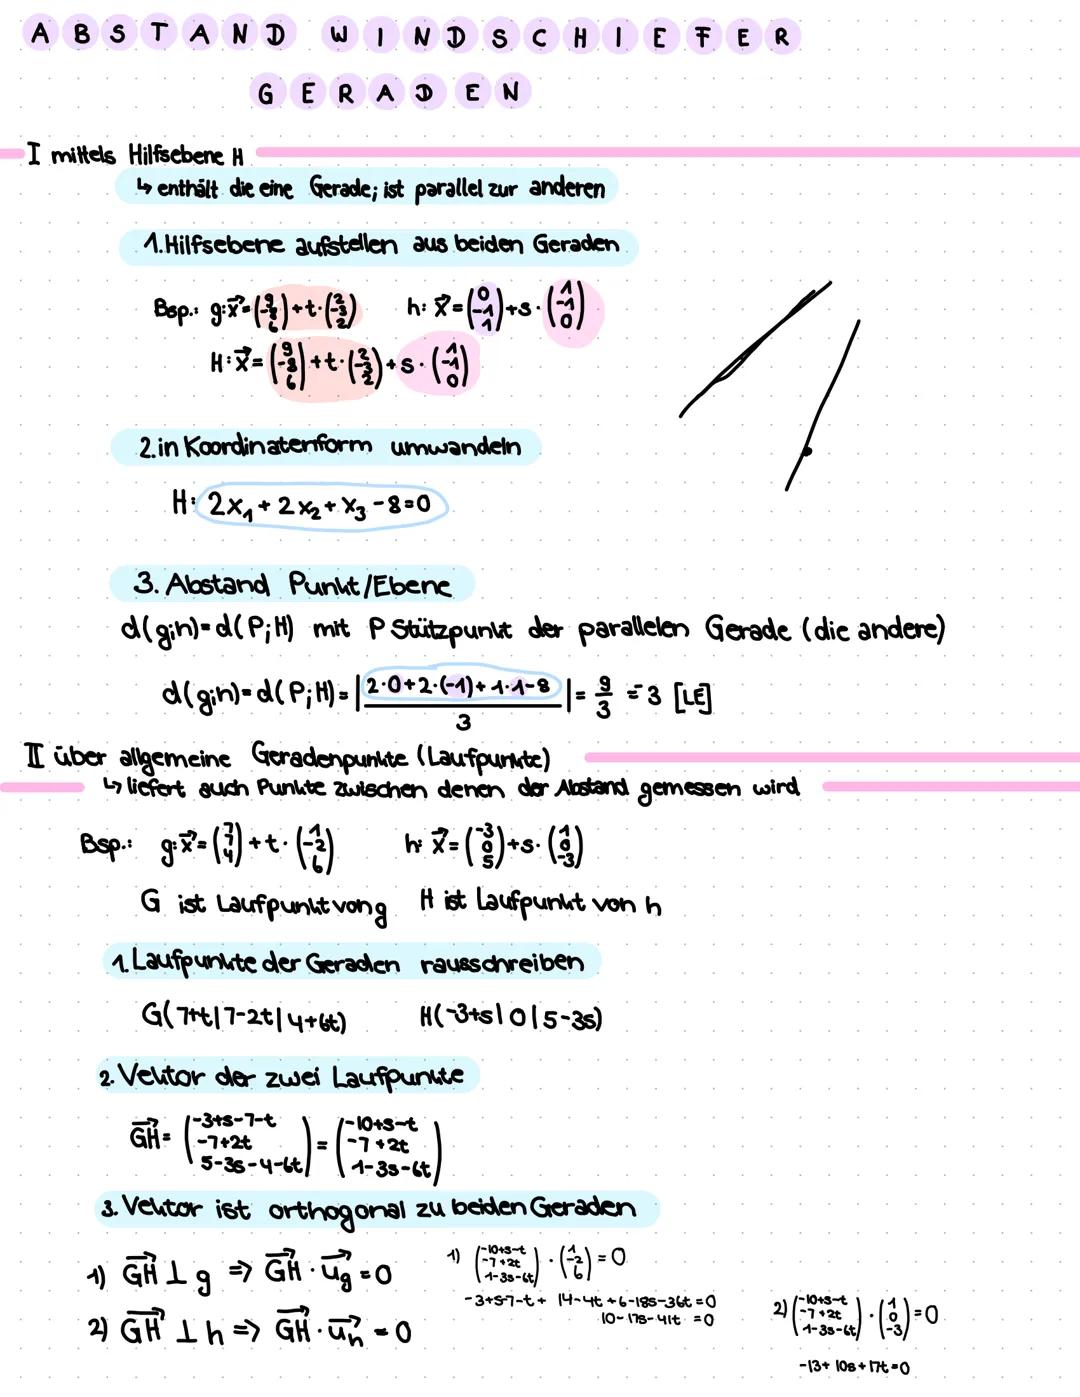 ABSTAND WINDSCHIEFER
GERADEN
I mittels Hilfsebene H
↳ enthält die eine Gerade; ist parallel zur anderen
1. Hilfsebene aufstellen aus beiden Geraden
Bsp.: g: x⃗ = (9 -8 6) + t · (2 -3 2) h: x⃗ = (0 -1 1) + s · (1 -1 0)
H: x⃗ = (9 -8 6) + t · (2 -3 2) + s · (1 -1 0)
2. in Koordinatenform umwandeln
H: 2x₁ + 2x₂ + x₃ - 8 = 0
3. Abstand Punkt/Ebene
d(g;h) = d(P;H) mit P Stützpunkt der parallelen Gerade (die andere)
d(g;h) = d(P;H) = | (2·0+2·(-1)+1·1-8) / 3 | = 9/3 = 3 [LE]
II über allgemeine Geradenpunkte (Laufpunkte)
↳ liefert auch Punkte zwischen denen der Abstand gemessen wird
Bsp.: g: x⃗ = (7 7 4) + t · (1 -2 6) h: x⃗ = (-3 0 5) + s · (1 0 -3)
G ist Laufpunkt von g H ist Laufpunkt von h
1. Laufpunkte der Geraden rausschreiben
G(7+t|7-2t|4+6t) H(-3+s|0|5-3s)
2. Vektor der zwei Laufpunkte
GH⃗ = (-3+s-7-t -7+2t 5-3s-4-6t) = (-10+s-t -7+2t 1-3s-6t)
3. Vektor ist orthogonal zu beiden Geraden
1) GH⃗ ⊥ g ⇒ GH⃗ · u⃗g = 0
2) GH⃗ ⊥ h ⇒ GH⃗ · u⃗h = 0
1) (-10+s-t -7+2t 1-3s-6t) · (1 -2 6) = 0
-3+s-7-t + 14-4t+6-18s-36t = 0
10-17s-41t = 0
2) (-10+s-t -7+2t 1-3s-6t) · (1 0 -3) = 0
-13+10s+17t = 0